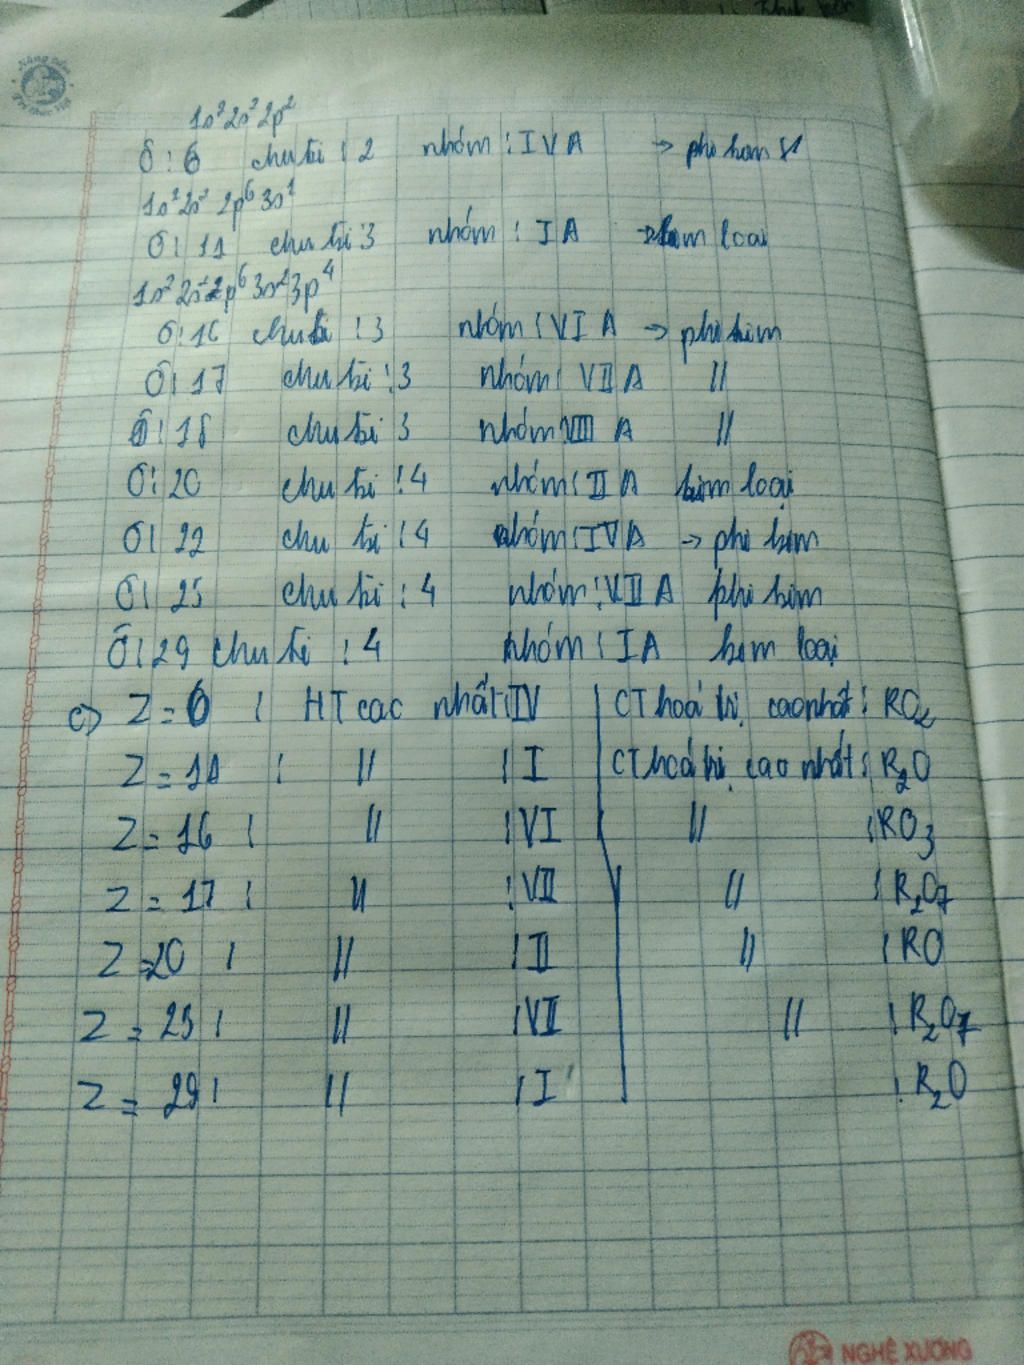 1s²2s²2p²
Ô: 6 chu kì: 2 nhóm: IVA → phi kim
1s²2s²2p⁶3s¹
Ô: 11 chu kì 3 nhóm: IA → kim loại
1s²2s²2p⁶3s²3p⁴
Ô: 16 chu kì: 3 nhóm: VIA → phi kim
Ô: 17 chu kì: 3 nhóm: VIIA //
Ô: 18 chu kì 3 nhóm VIIIA //
Ô: 20 chu kì: 4 nhóm: IIA kim loại
Ô: 22 chu kì: 4 nhóm: IVA → phi kim
Ô: 25 chu kì: 4 nhóm: VIIA phi kim
Ô: 29 chu kì: 4 nhóm: IA kim loại
c) Z = 6 : HT cao nhất: IV CT hoá trị cao nhất: RO₂
Z = 11 : // : I CT hoá trị cao nhất: R₂O
Z = 16 : // : VI // : RO₃
Z = 17 : // : VII // : R₂O₇
Z = 20 : // : II // : RO
Z = 25 : // : VII // : R₂O₇
Z = 29 : // : I : R₂O
NGHỆ XƯƠNG